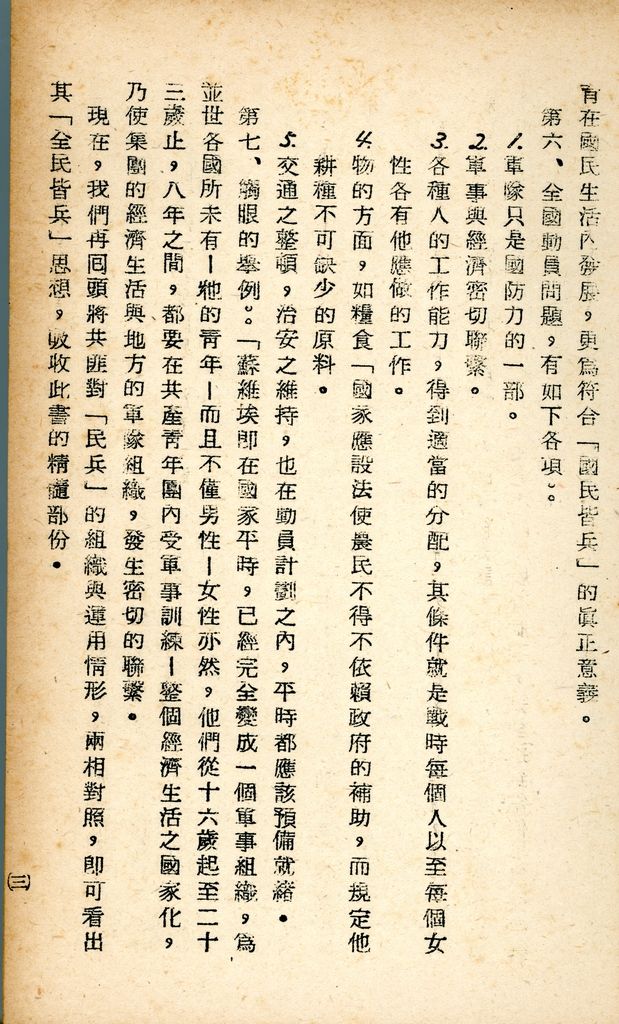 育在國民生活內發展，更為符合「國民皆兵」的眞正意義。
第六、全國動員問題，有如下各項：。
1. 軍隊只是國防力的一部。
2. 軍事與經濟密切聯繫。
3. 各種人的工作能力，得到適當的分配，其條件就是戰時每個人以至每個女
性各有他應做的工作。
4. 物的方面，如糧食「國家應設法使農民不得不依賴政府的補助，而規定他
耕種不可缺少的原料。
5. 交通之整頓，治安之維持，也在動員計劃之內，平時都應該預備就緒。
第七、觸眼的舉例：。「蘇維埃即在國家平時，已經完全變成一個軍事組織，為
並世各國所未有—牠的靑年—而且不僅男性—女性亦然，他們從十六歲起至二十
三歲止，八年之間，都要在共產靑年團內受軍事訓練—整個經濟生活之國家化，
乃使集團的經濟生活與地方的軍隊組織，發生密切的聯繫。
現在，我們再囘頭將共匪對「民兵」的組織與運用情形，兩相對照，即可看出
其「全民皆兵」思想，吸收此書的精髓部份。
(三)